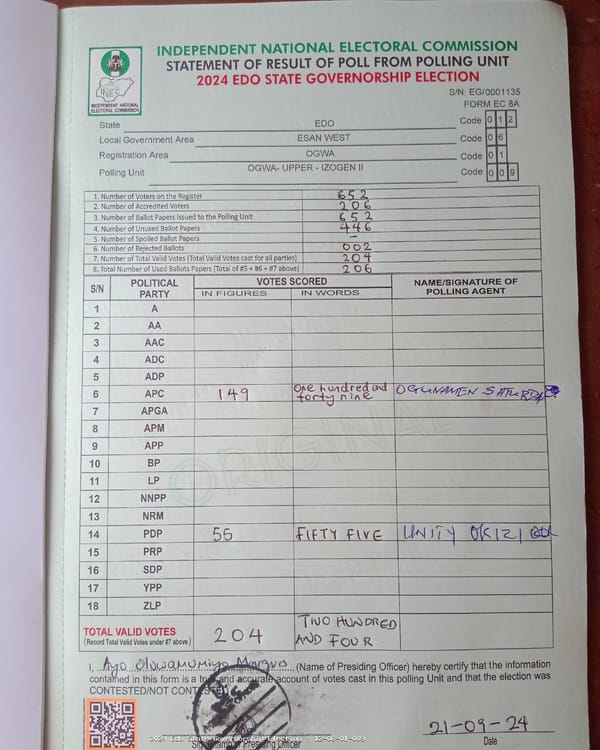 INDEPENDENT NATIONAL ELECTORAL COMMISSION
STATEMENT OF RESULT OF POLL FROM POLLING UNIT
2024 EDO STATE GOVERNORSHIP ELECTION
INEC
INDEPENDENT NATIONAL
ELECTORAL COMMISSION
S/N: EG/0001135
FORM EC 8A
State EDO Code 0 1 2
Local Government Area ESAN WEST Code 0 6
Registration Area OGWA Code 0 1
Polling Unit OGWA- UPPER - IZOGEN II Code 0 0 9
1. Number of Voters on the Register 652
2. Number of Accredited Voters 206
3. Number of Ballot Papers Issued to the Polling Unit 652
4. Number of Unused Ballot Papers 446
5. Number of Spoiled Ballot Papers -
6. Number of Rejected Ballots 002
7. Number of Total Valid Votes (Total Valid Votes cast for all parties) 204
8. Total Number of Used Ballots Papers (Total of #5 + #6 + #7 above) 206
S/N POLITICAL PARTY VOTES SCORED NAME/SIGNATURE OF POLLING AGENT
IN FIGURES IN WORDS
1 A
2 AA
3 AAC
4 ADC
5 ADP
6 APC 149 One hundred and forty nine OGUNAMEN SATURDAY
7 APGA
8 APM
9 APP
10 BP
11 LP
12 NNPP
13 NRM
14 PDP 55 FIFTY FIVE UNITY OKIZI
15 PRP
16 SDP
17 YPP
18 ZLP
ORIGINAL
TOTAL VALID VOTES 204 TWO HUNDRED AND FOUR
(Record Total Valid Votes under #7 above)
I, Ayo (Name of Presiding Officer) hereby certify that the information
contained in this form is a true and accurate account of votes cast in this polling Unit and that the election was
CONTESTED/NOT CONTESTED
21-09-24
Presiding Officer
Date
2024 Edo State Governorship Election - 12-06-01-009